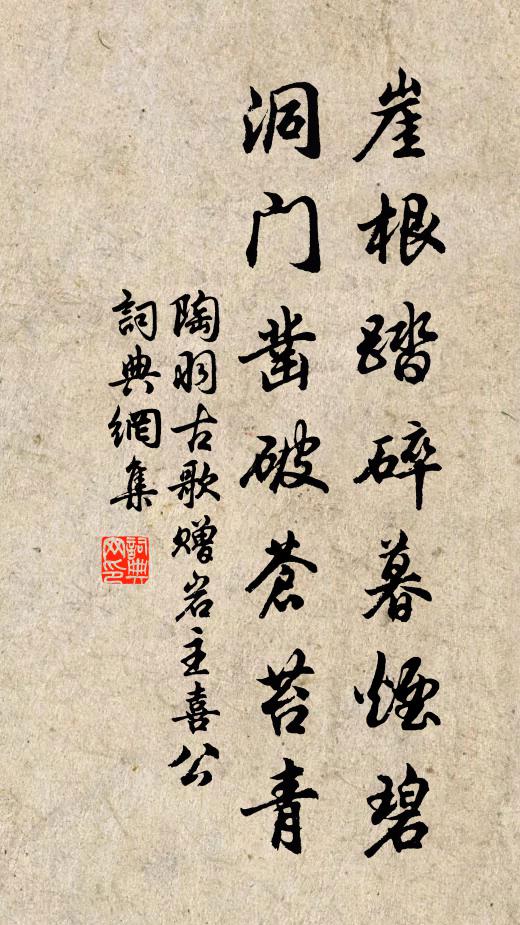 崖根踏碎暮煙碧
洞门凿破苍苔青
陶羽古歌赠岩主喜公
詞典網集
詞典网印